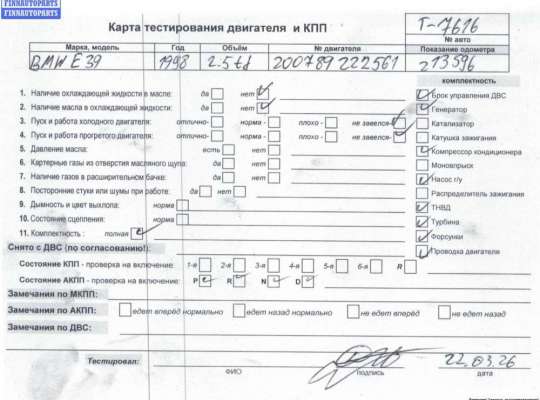 FINNAUTOPARTS
FINNAUTOPARTS
Карта тестирования двигателя и КПП
Т-7616
№ авто
Марка, модель Год Объём № двигателя Показание одометра
BMW E 39 1998 2.5 td 200789222561 213596
комплектность
1. Наличие охлаждающей жидкости в масле: да нет
Блок управления ДВС
2. Наличие масла в охлаждающей жидкости: да нет
Генератор
3. Пуск и работа холодного двигателя: отлично- норма - плохо - не завелся-
Катализатор
4. Пуск и работа прогретого двигателя: отлично- норма - плохо - не завелся-
Катушка зажигания
5. Давление масла: есть нет
Компрессор кондиционера
6. Картерные газы из отверстия масляного щупа: да нет
Моновпрыск
7. Наличие газов в расширительном бачке: да нет
Насос г/у
8. Посторонние стуки или шумы при работе: да нет
Распределитель зажигания
9. Дымность и цвет выхлопа: норма
ТНВД
10. Состояние сцепления: норма
Турбина
11. Комплектность : полная
Форсунки
Снято с ДВС (по согласованию!):
Проводка двигателя
Состояние КПП - проверка на включение: 1-я 2-я 3-я 4-я 5-я 6-я R
Состояние АКПП - проверка на включение: P R N D
Замечания по МКПП:
Замечания по АКПП: едет вперёд нормально едет назад нормально не едет вперёд не едет назад
Замечания по ДВС:
Тестировал: 22.03.26
ФИО подпись дата